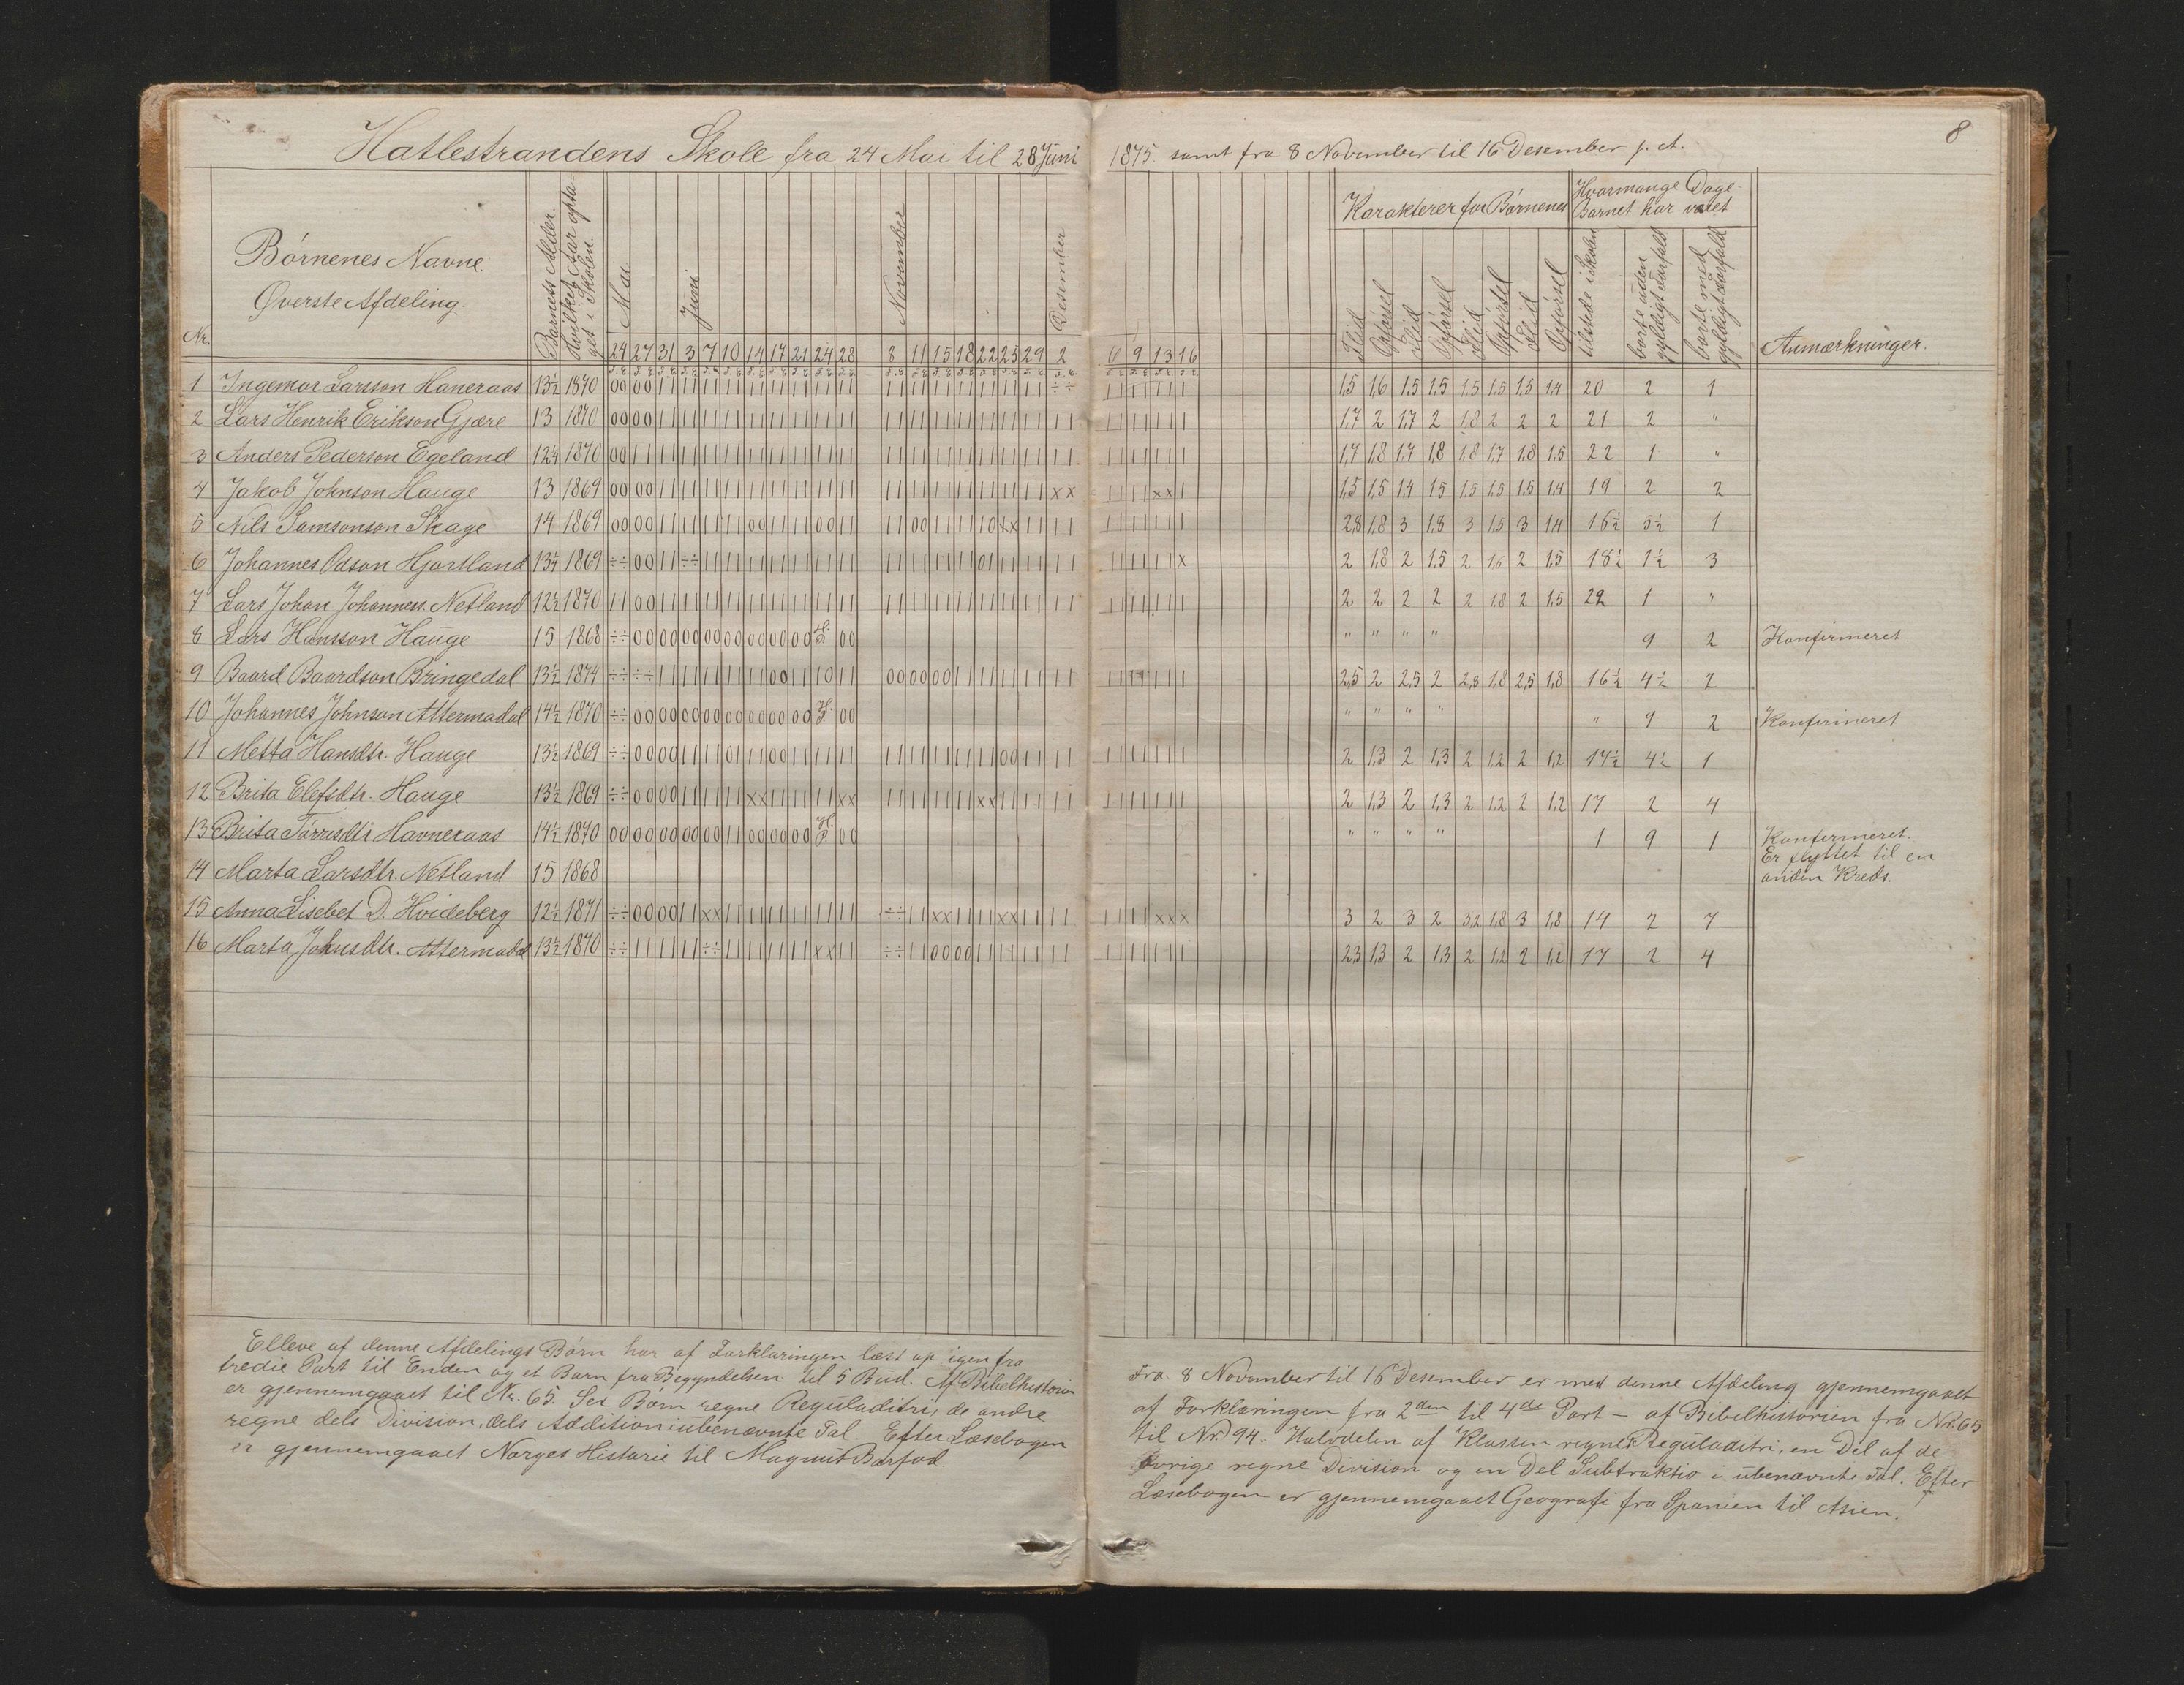 8
Hatlestrandens Skole fra 24 Mai til 28 Juni 1875 samt fra 8 November til 16 Desember s. A.
Nr. Børnenes Navne. Øverste Afdeling. Barnets Alder. Hvilket Aar optaget i Skolen. Mai Juni November Desember
Karakterer for Børnenes Hvormange Dage Barnet har været
Flid Opførsel Flid Opførsel Flid Opførsel Flid Opførsel tilstede i Skolen borte uden gyldigt Forfald borte med gyldigt Forfald Anmærkninger.
24 27 31 3 7 10 14 17 21 24 28 8 11 15 18 22 25 29 2 6 9 13 16
1 Ingemor Larsson Haneraas 13½ 1870 1,5 1,6 1,5 1,5 1,5 1,5 1,5 1,4 20 2 1
2 Lars Henrik Erikson Gjære 13 1870 1,7 2 1,7 2 1,8 2 2 2 21 2 "
3 Anders Pederson Egeland 12¼ 1870 1,7 1,8 1,7 1,8 1,8 1,7 1,8 1,5 22 1 "
4 Jakob Johnson Hauge 13 1869 1,5 1,5 1,4 1,5 1,5 1,5 1,5 1,4 19 2 2
5 Nils Samsonson Skage 14 1869 2,8 1,8 3 1,8 3 1,5 3 1,4 16½ 5½ 1
6 Johannes Odson Hjortland 13¼ 1869 2 1,8 2 1,5 2 1,6 2 1,5 18½ 1½ 3
7 Lars Johan Johanness. Netland 12½ 1870 2 2 2 2 2 1,8 2 1,5 22 1 "
8 Lars Hansson Hauge 15 1868 " " " " 9 2 Konfirmeret
9 Baard Baardson Bringedal 13½ 1874 2,5 2 2,5 2 2,8 1,8 2,5 1,8 16½ 4½ 2
10 Johannes Johnson Attermadal 14½ 1870 " " " " " 9 2 Konfirmeret
11 Metta Hansdtr. Hauge 13½ 1869 2 1,3 2 1,3 2 1,2 2 1,2 17½ 4½ 1
12 Brita Elefsdtr. Hauge 13½ 1869 2 1,3 2 1,3 2 1,2 2 1,2 17 2 4
13 Brita Tørrisdtr Havneraas 14½ 1870 " " " " 1 9 1 Konfirmeret.
14 Marta Larsdtr. Netland 15 1868 Er flyttet til en anden Kreds.
15 Anna Lisebet D. Hvideberg 12½ 1871 3 2 3 2 3,2 1,8 3 1,8 14 2 7
16 Marta Johnsdtr. Attermadal 13½ 1870 2,3 1,3 2 1,3 2 1,2 2 1,2 17 2 4
Elleve af denne Afdelings Børn har af Forklaringen læst op igen fra
tredie Part til Enden og et Barn fra Begyndelsen til 5 Bud. Af Bibelhistorien
er gjennemgaaet til Nr. 65. Sex Børn regne Reguladitri, de andre
regne dels Division, dels Addition i ubenævnte Tal. Efter Læsebogen
er gjennemgaaet Norges Historie til Magnus Barfod.
Fra 8 November til 16 Desember er med denne Afdeling gjennemgaaet
af Forklaringen fra 2den til 4de Part – af Bibelhistorien fra Nr. 65
til Nr. 94. Halvdelen af Klassen regner Reguladitri, en Del af de
øvrige regne Division og en Del Subtraktio i ubenævnte Tal. Efter
Læsebogen er gjennemgaaet Geografi fra Spanien til Asien.